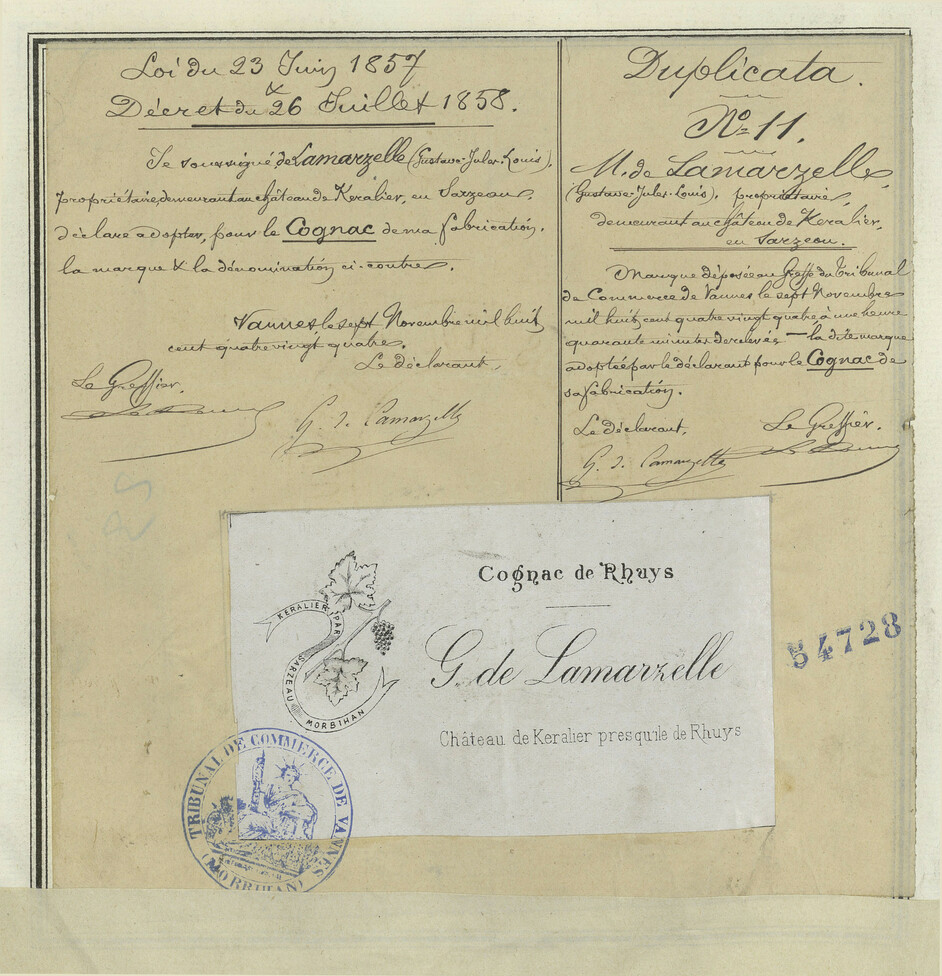 Loi du 23 Juin 1857
&
Décret du 26 Juillet 1858.
Je soussigné, de Lamarzelle (Gustave-Jules-Louis),
propriétaire, demeurant au château de Keralier, en Sarzeau,
déclare adopter, pour le Cognac de ma fabrication,
la marque & la dénomination ci-contre.
Vannes le sept Novembre mil huit
cent quatre vingt quatre.
Le déclarant,
Le Greffier,
G. d. Lamarzelle
Duplicata.
No 11.
M. de Lamarzelle,
(Gustave-Jules-Louis), propriétaire,
demeurant au château de Keralier,
en Sarzeau.
Marque déposée au Greffe du Tribunal
de Commerce de Vannes le sept Novembre
mil huit cent quatre vingt quatre à une heure
quarante minutes de relevée — la dite marque
adoptée par le déclarant pour le Cognac de
sa fabrication.
Le déclarant,
Le Greffier.
G. d. Lamarzelle
Cognac de Rhuys
G. de Lamarzelle
Château de Keralier presquile de Rhuys
KERALIER PAR SARZEAU MORBIHAN
54728
TRIBUNAL DE COMMERCE DE VANNES
(MORBIHAN)